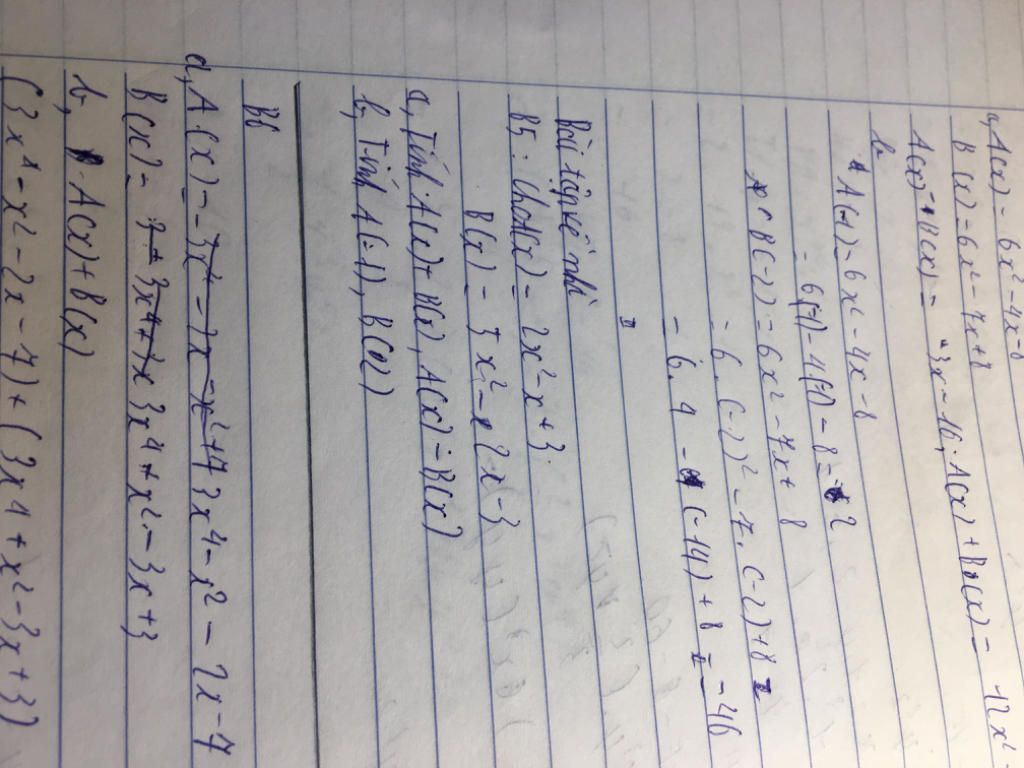 a, A(x) = 6x² - 4x - 8
B(x) = 6x² - 7x + 8
A(x) - B(x) = 3x - 16, A(x) + B(x) = 12x² -
b
* A(-1) = 6x² - 4x - 8
= 6(-1) - 4(-1) - 8 = 2
* B(-2) = 6x² - 7x + 8
= 6.(-2)² - 7.(-2) + 8 =
= 6.4 - (-14) + 8 = = 46
Bài tập về nhà
B5: Cho A(x) = 2x² - x + 3.
B(x) = 5x² - 2x - 3
a, Tính A(x) + B(x), A(x) - B(x)
b, Tính A(-1), B(02)
B6
a, A(x) = 3x⁴ - x² - 2x - 7
B(x) = 3x⁴ + x² - 3x + 3
b, A(x) + B(x)
(3x⁴ - x² - 2x - 7) + (3x⁴ + x² - 3x + 3)